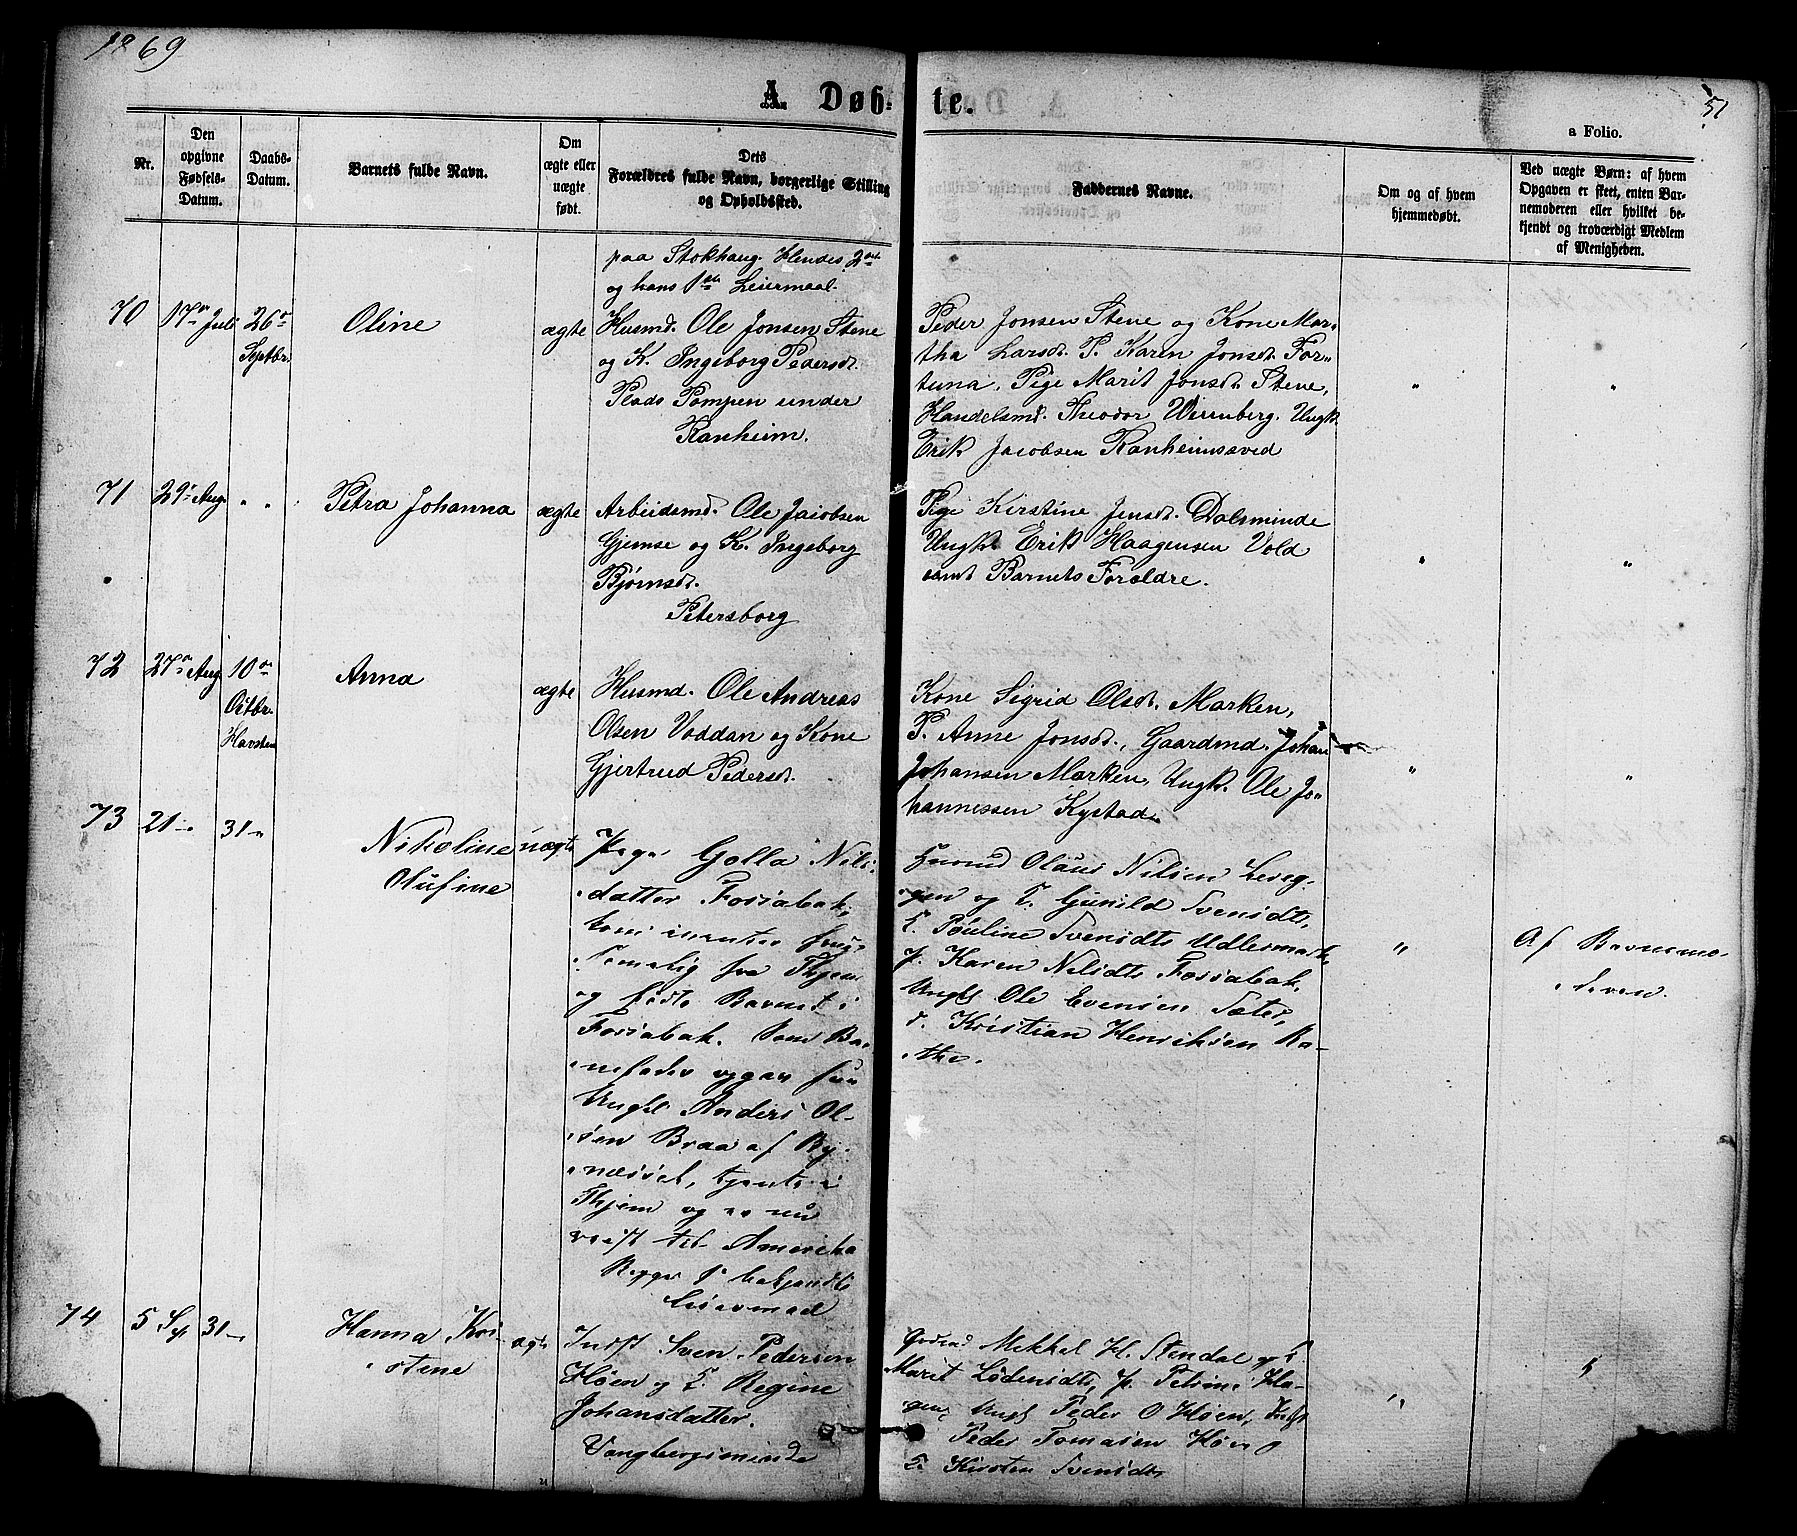 1869
51
A. Døb-te.
a Folio.
Nr.
Den
opgivne
Fødsels-
Datum.
Daabs-
Datum.
Barnets fulde Navn.
Om
ægte eller
uægte
født.
Dets
Forældres fulde Navn, borgerlige Stilling
og Opholdssted.
Faddernes Navne.
Om og af hvem
hjemmedøbt.
Ved uægte Børn: af hvem
Opgaven er skeet, enten Bar-
nemoderen eller hvilket be-
kjendt og troværdigt Medlem
af Menigheden.
paa Stokhaug. Hendes 2det
og hans 1ste Leiermaal.
70
17de Juli
26de
Septbr.
Oline
ægte
Husmd. Ole Jonsen Stene
og K. Ingeborg Pedersdt.
Plads Pompen under
Ranheim.
Peder Jonsen Stene og Kone Mar-
tha Larsdt. P. Karen Jonsdt. For-
tuna, Pige Marit Jonsdt. Stene,
Handelsmd. Theodor Wirenberg. Ungk.
Erik Jacobsen Ranheimsved
"
"
71
29de Aug.
" "
Petra Johanna
ægte
Arbeidsmd. Ole Jacobsen
Gjemse og K. Ingeborg
Bjørnsdt.
Petersborg
Pige Kirstine Jensdt. Dalsminde
Ungk. Erik Haagensen Vold
samt Barnets Foroldre.
"
"
72
27de Aug
10de
Octbr.
Havstein
Anna
ægte
Husmd. Ole Andreas
Olsen Voddan og Kone
Gjertrud Pedersdt.
Kone Sigrid Olsdt. Marken,
P. Anne Jonsdt., Gaardmd. Johan
Johansen Marken, Ungk. Ole Jo-
hannessen Kystad.
"
"
73
21-
31-
Nikoline
Olufine
uægte
Pige Golla Nils-
datter Fossabak,
som
fra Thjem
og fødte Barnet i
Fossabak. Som Bar-
nefader opgav hun
Ungk. Anders Ol-
sen Braa af By-
næsset, tjente i
Thjem og er nu
reist til Amerika
Begges 1ste bekjendte
Leiermaal
Husmd Olaus Nilsen
og K. Gunild Svensdt,
K. Pauline Svensdt Udlesmark,
P. Karen Nilsdt Fossabak,
Ungk Ole Evensen Sæter,
d. Kristian Henriksen Ra-
the.
"
Af Barnemo-
deren.
74
5 Sp
31-
Hanna Kri-
stene
ægte
Indst Sven Pedersen
Høen og K. Regine
Johansdatter.
Vangbergsminde
Mekkel H. Stendal og K.
Marit P. Petrine Ha-
gen, Ungk Peder O Høen, Indst
Peder Tomasen Høen og
K. Kirsten Svensdt
"
"